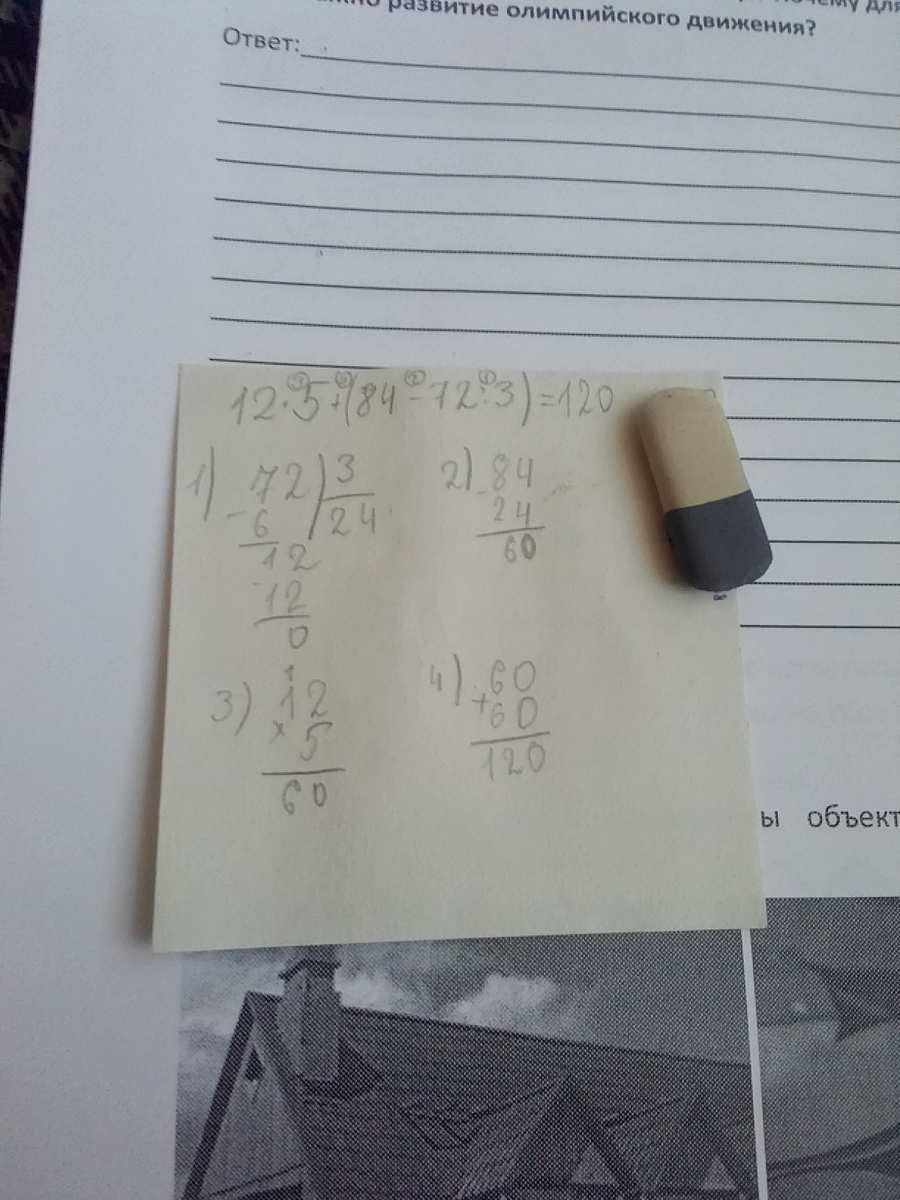 почему для
развитие олимпийского движения?
Ответ:
12·5+(84-72:3)=120
1) 72 | 3
- 6 24
12
- 12
0
2) 84
- 24
60
3) 1
12
× 5
60
4) 60
+ 60
120
ы объект